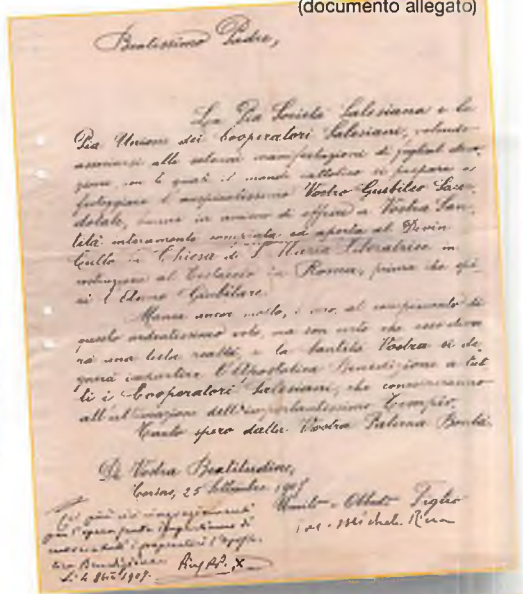 (documento allegato)
Beatissimo Padre,
La Pia Società Salesiana e la
Pia Unione dei Cooperatori Salesiani, volendo
associarsi alle solenni manifestazioni di figlial devo-
zione con le quali il mondo cattolico si prepara a
festeggiare l'auspicatissimo Vostro Giubileo Sacer-
dotale, hanno in animo di offrire a Vostra San-
tità interamente compiuta ed aperta al Divin
Culto la Chiesa di S. Maria Liberatrice in
costruzione al Testaccio in Roma, prima che spi-
ri l'Anno Giubilare.
Manca ancor molto, è vero, al compimento di
questo ardentissimo voto, ma son certo che esso diver-
rà una bella realtà, se la Santità Vostra si de-
gnerà impartire l'Apostolica Benedizione a tut-
ti i Cooperatori Salesiani, che concorreranno
all'ultimazione dell'importantissimo Tempio.
Tanto spero dalla Vostra Paterna Bontà.
Di Vostra Beatitudine,
25 Settembre 1907
Umile Obbl Figlio
Sac. Michele Rua
Benedizione.
1907.
Pius PP. X